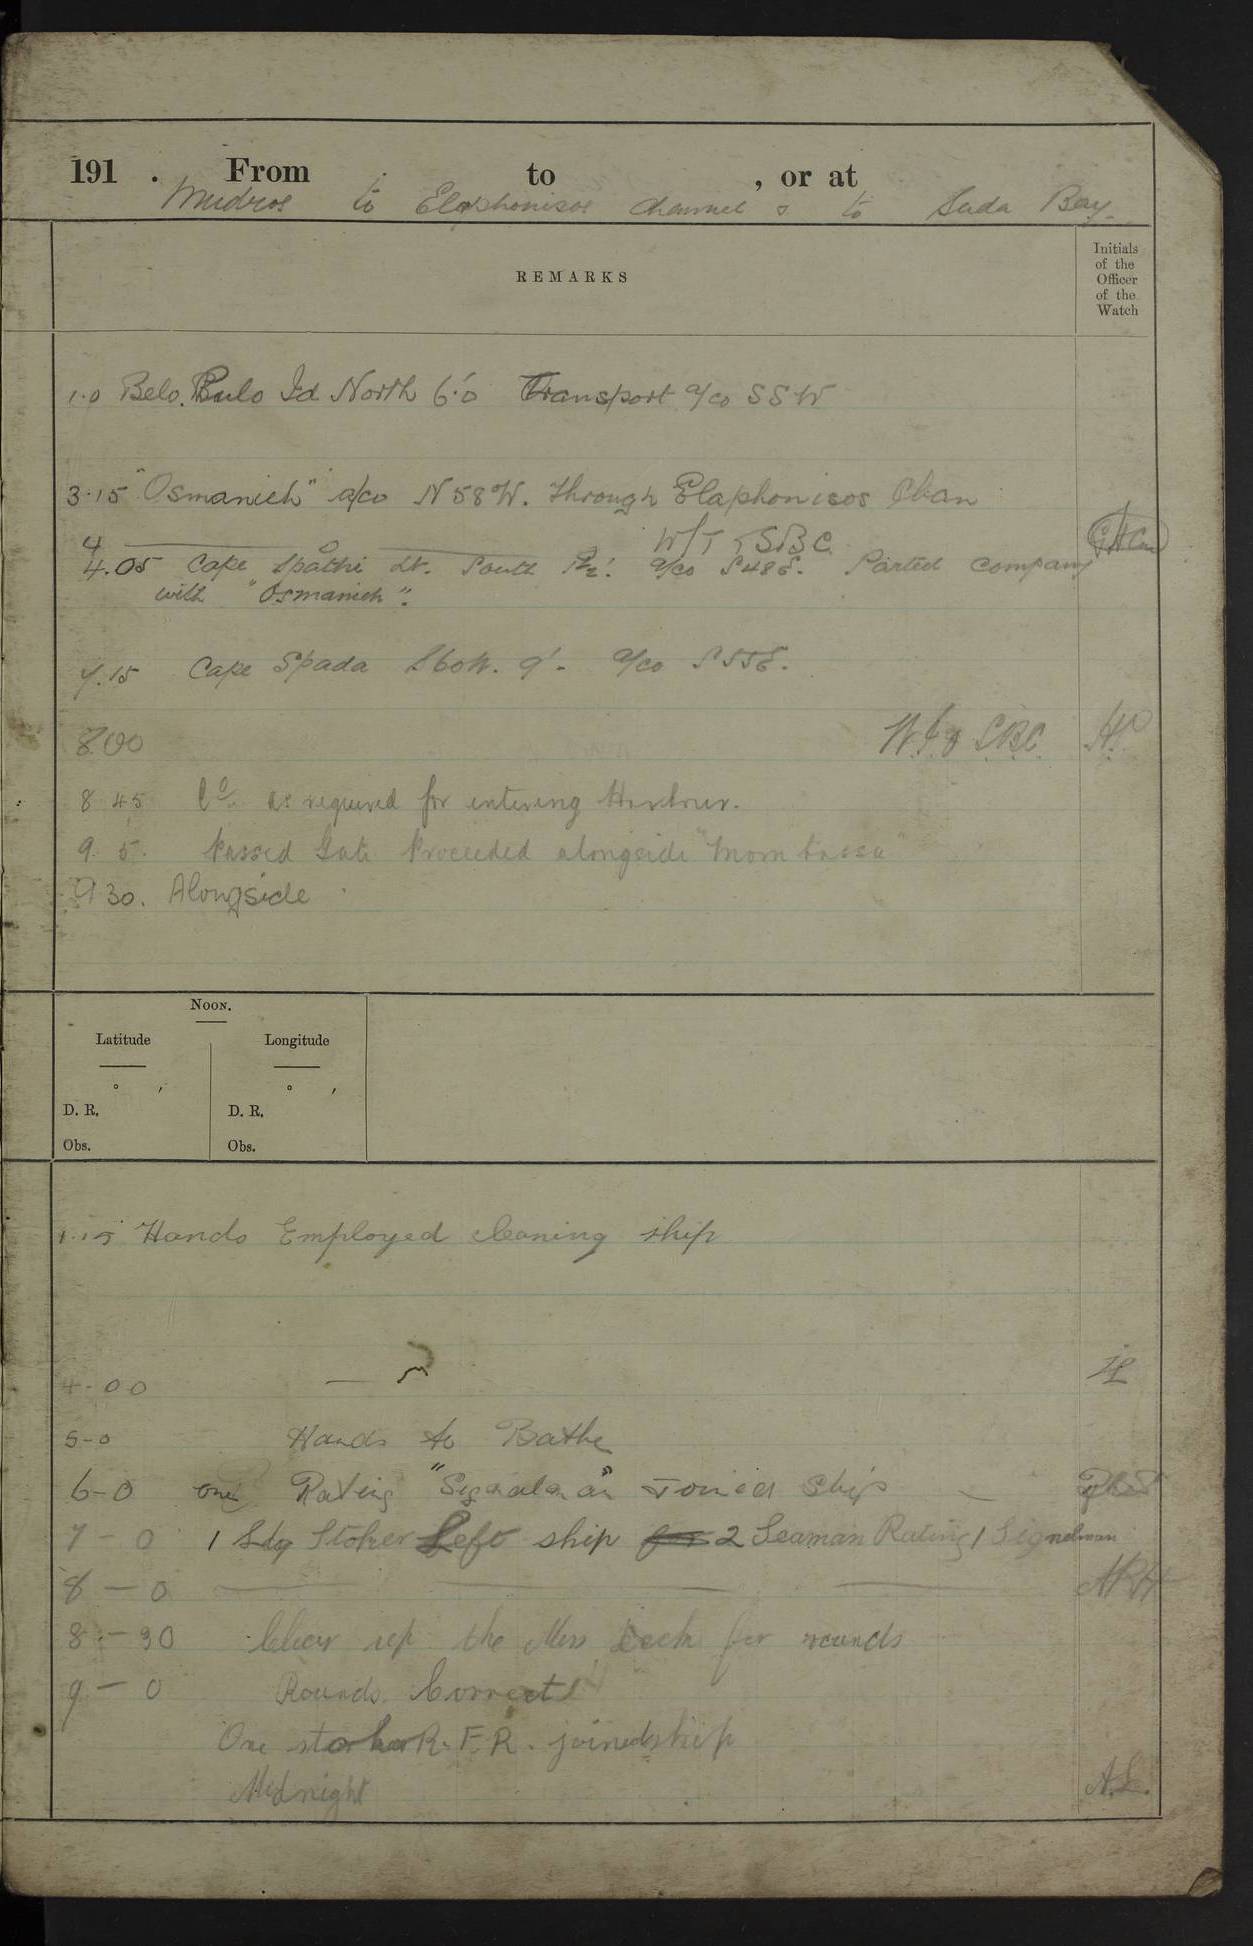 191 . From to , or at
Mudros to Elaphonisos Channel & to Suda Bay
REMARKS
Initials
of the
Officer
of the
Watch
1.0 Belo Pulo Id North 6'.0 Transport a/co SSW
3.15 "Osmanieh" a/co N58W. through Elaphonisos Chan
4 W/T SBC
4.05 Cape Spathi Lt. South a/co S48E. Parted company
with "Osmanieh".
7.15 Cape Spada S60W. 9'. a/co S55E.
8.00
8 45 Co. as required for entering Harbour.
9. 5. Passed Gate Proceeded alongside "Mombassa"
9 30. Alongside
NOON.
Latitude Longitude
° ′ ° ′
D. R. D. R.
Obs. Obs.
1.15 Hands Employed cleaning ship
4-00
5-0 Hands to Bathe
6-0 one Rating "Signalman" Joined Ship
7-0 1 Ldg Stoker Left ship 2 Seaman Rating 1 Signalman
8-0
8-30 Clear up the Mess Deck for rounds
9-0 Rounds Correct
One stoker R.F.R. joined ship
Midnight A.L.